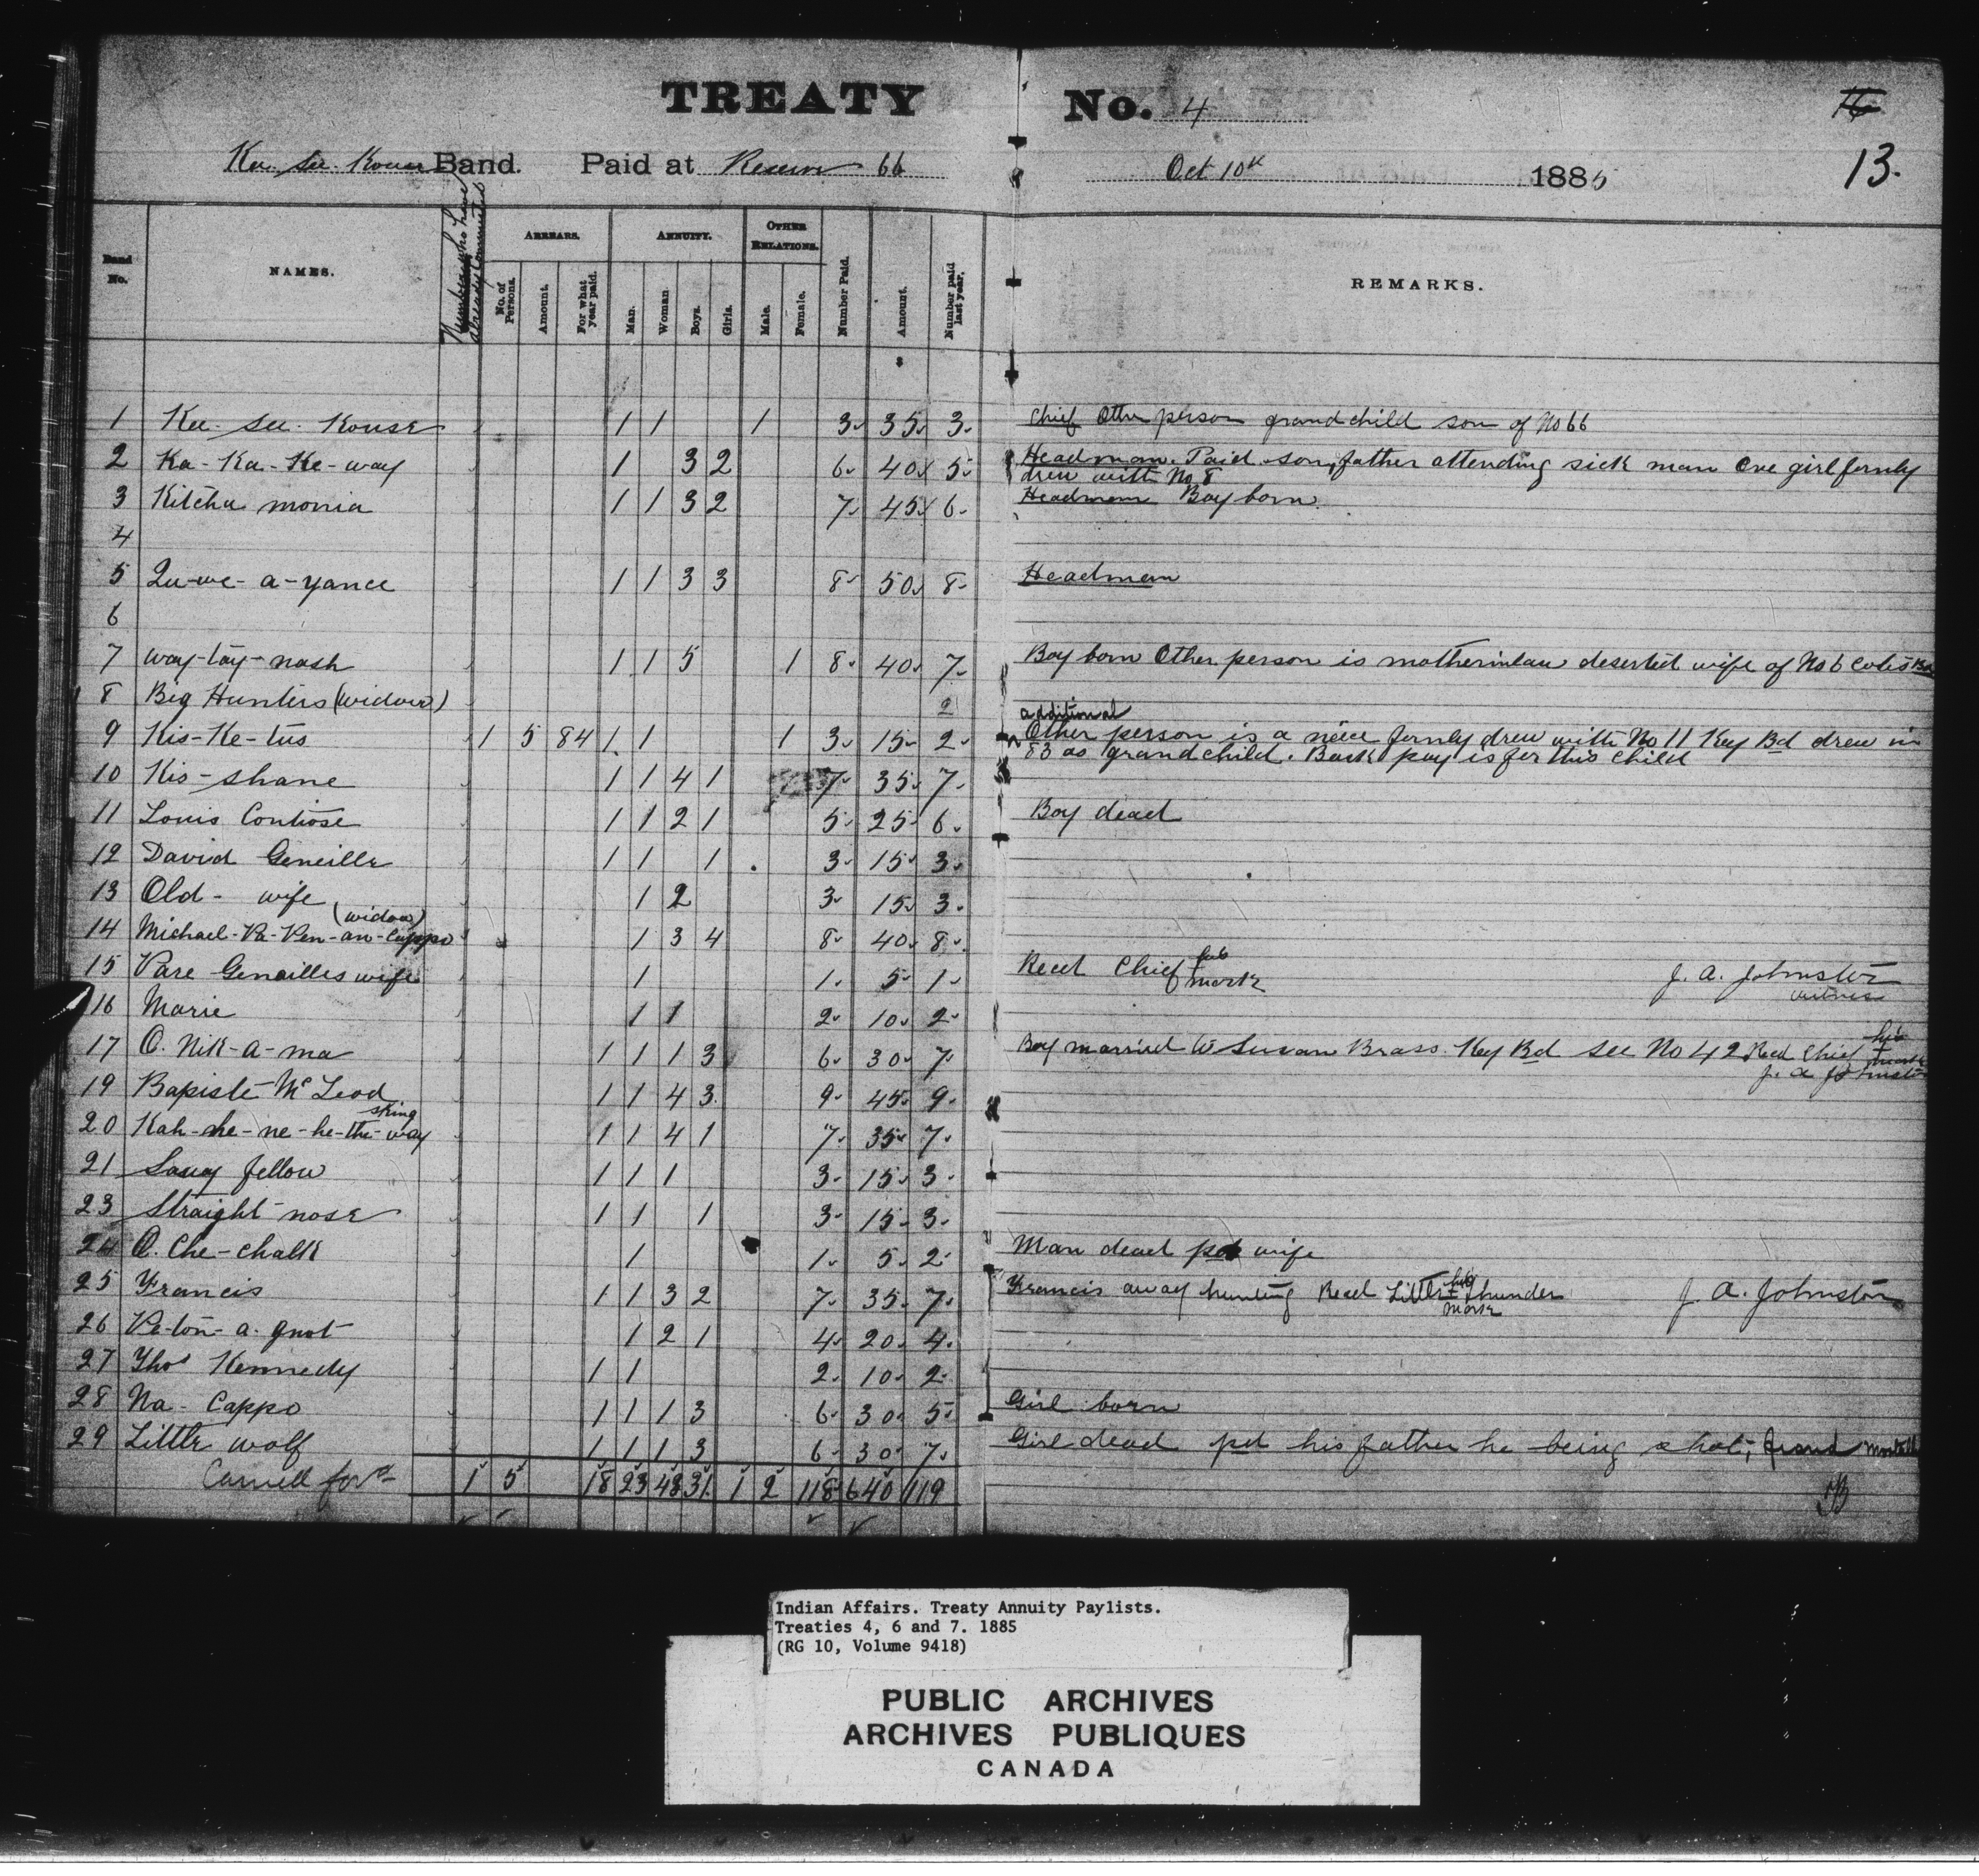 TREATY No. 4
16
13.
Kee. See. Kouse Band. Paid at Reserve 66 Oct 10th 1885
Band No.
NAMES.
Number who have already Commuted
ARREARS.
No. of Persons.
Amount.
For what year paid.
ANNUITY.
Man.
Woman
Boys.
Girls.
OTHER RELATIONS.
Male.
Female.
Number Paid.
Amount.
Number paid last year.
REMARKS.
$
1 Kee-see-Kouse 1 1 1 3 35 3 Chief Other person grandchild son of No 66
2 Ka-Ka-Ke-way 1 3 2 6 40 5 Headman. Paid son, father attending sick man One girl formly
drew with No 8
3 Kitcha monia 1 1 3 2 7 45 6 Headman Boy born
4
5 Qu-we-a-yance 1 1 3 3 8 50 8 Headman
6
7 way-tay-nash 1 1 5 1 8 40 7 Boy born Other person is motherinlaw deserted wife of No 6 Cotés Bd
8 Big Hunters (widow) 2
additional
9 Kis-Ke-tus 1 5 84 1 1 1 3 15 2 Other person is a niece formly drew with No 11 Key Bd drew in
83 as grandchild. Back pay is for this child
10 Kis-shane 1 1 4 1 7 35 7
11 Louis Contiose 1 1 2 1 5 25 6 Boy dead
12 David Geneille 1 1 1 3 15 3
13 Old-wife 1 2 3 15 3
(widow)
14 Michael-Pa-Pen-an-Cappo 1 3 4 8 40 8
15 Pare Genailles wife 1 1 5 1 Recd Chief his mark J. A. Johnston
witness
16 Marie 1 1 2 10 2
17 O. Nik-a-ma 1 1 1 3 6 30 7 Boy married to Susan Brass. Key Bd see No 42 Recd Chief his mark
J. A Johnston
19 Bapiste McLeod 1 1 4 3 9 45 9
string
20 Kah-she-ne-he-the-way 1 1 4 1 7 35 7
21 Saucy fellow 1 1 1 3 15 3
23 Straight nose 1 1 1 3 15 3
24 O. Che-chalk 1 1 5 2 Man dead pd wife
25 Francis 1 1 3 2 7 35 7 Francis away hunting Recd Little his mark thunder J. A. Johnston
26 Pe-ton-a-quot 1 2 1 4 20 4
27 Thos Kennedy 1 1 2 10 2
28 Na-Cappo 1 1 1 3 6 30 5 Girl born
29 Little wolf 1 1 1 3 6 30 7 Girl dead pd his father he being shot,
Carried ford 1 5 18 23 43 31 1 2 118 640 119
Indian Affairs. Treaty Annuity Paylists.
Treaties 4, 6 and 7. 1885
(RG 10, Volume 9418)
PUBLIC ARCHIVES
ARCHIVES PUBLIQUES
CANADA